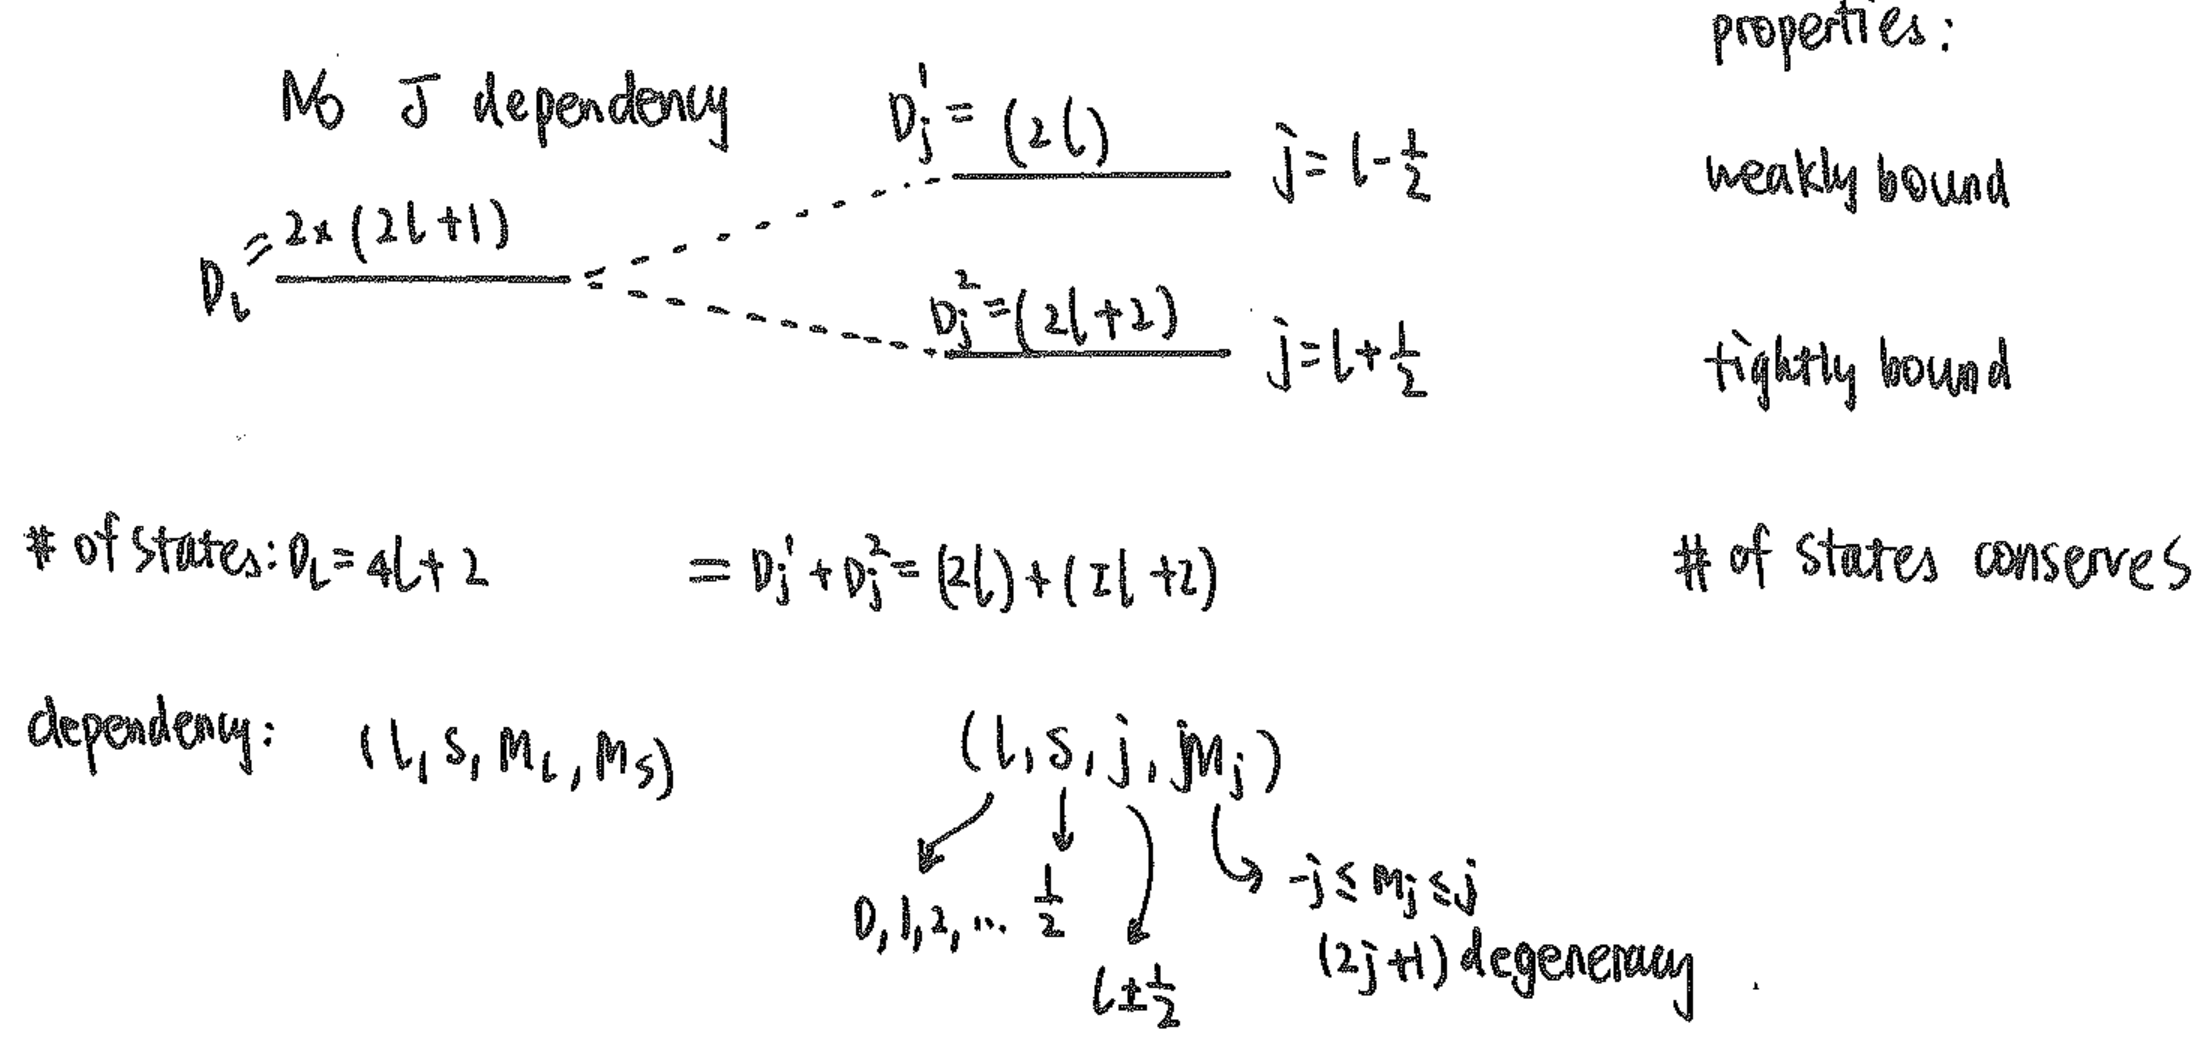 properties:
No J dependency
D_j^1 = (2l)
j = l - 1/2
weakly bound
D_l = 2x(2l+1)
D_j^2 = (2l+2)
j = l + 1/2
tightly bound
# of states: D_L = 4l+2 = D_j^1 + D_j^2 = (2l) + (2l+2) # of states conserves
dependency: (l, s, m_l, m_s) (l, s, j, jm_j)
-j ≤ m_j ≤ j
0, 1, 2, ... 1/2
(2j+1) degeneracy
l ± 1/2